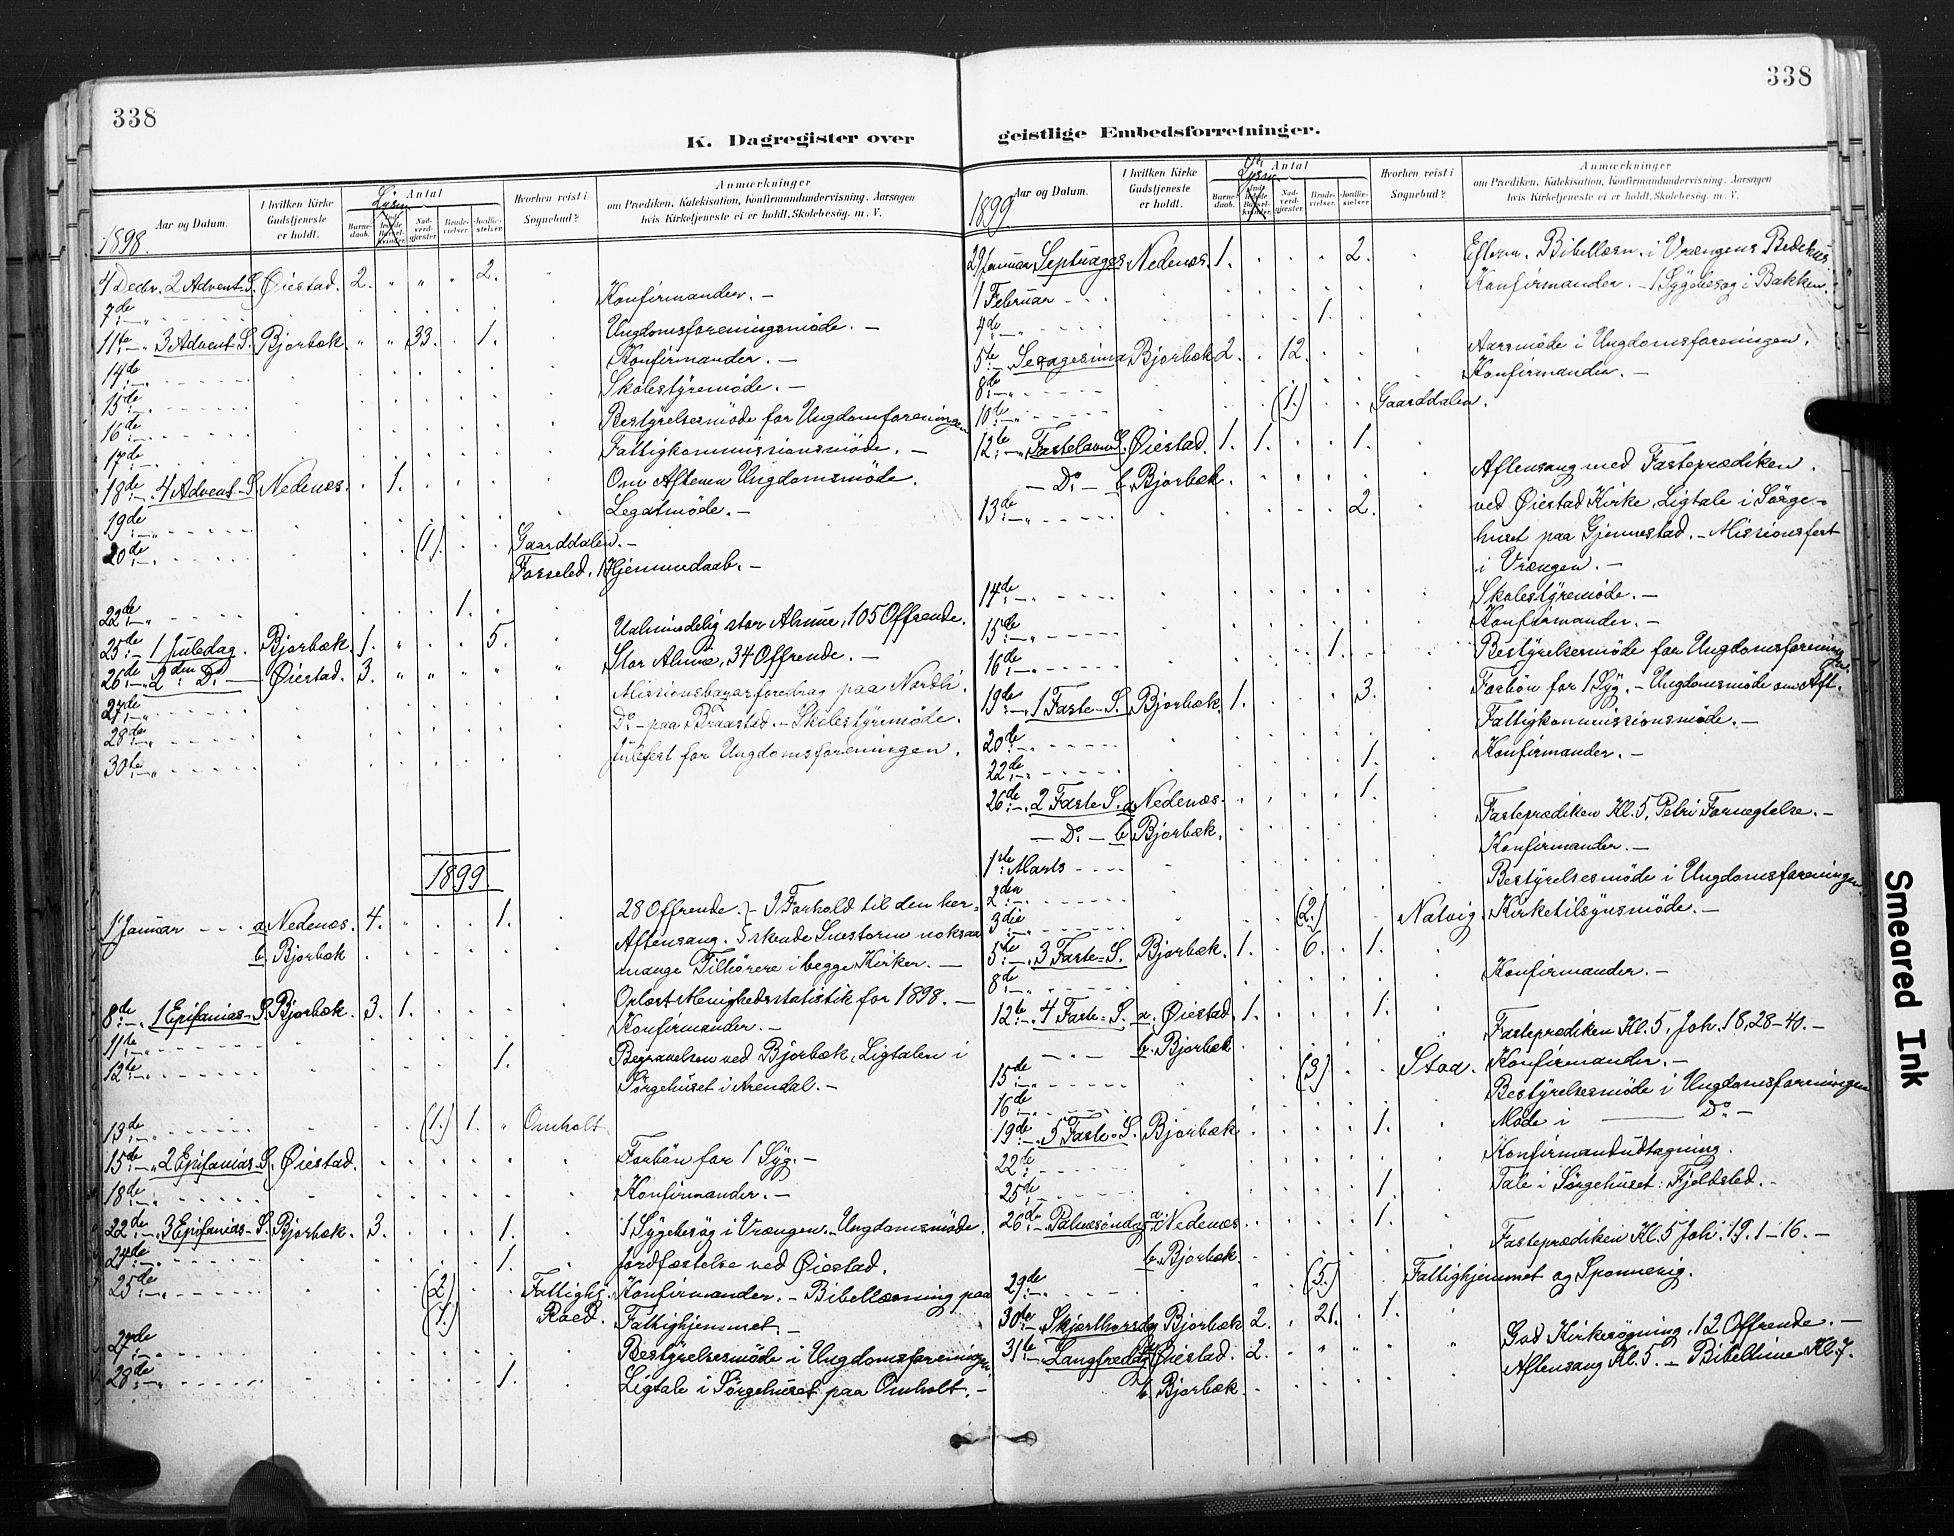 338
338
K. Dagregister over geistlige Embedsforretninger.
Aar og Datum.
I hvilken Kirke Gudstjeneste er holdt.
Antal
Barnedaab.
Nadverdgjester
Brudevielser.
Jordfæstelser
Hvorhen reist i Sognebud?
Anmærkninger
om Prædiken, Katekisation, Konfirmandundervisning. Aarsagen hvis Kirketjeneste ei er holdt. Skolebesøg. m. V.
1898.
4 Decbr. 2 Advent-S. Øiestad. 2. " " " 2.
7de Konfirmander. —
11te " 3 Advent-S. Bjorbæk. " " 33. . 1. Ungdomsforeningsmöde. —
14de Konfirmander. —
15de Skolestÿremöde. —
16de Bestÿrelsesmöde for Ungdomforeningen
17de Fattigkommissionsmöde. —
18de 4 Advent-S. Nedenæs. . 1. Om Aftenen Ungdomsmöde.
19de Legatmöde. —
20de (1). Gaarddalen. —
Fosseled. 1 Hjemmedaab. —
22de 1.
25de 1 Juledag. Bjorbæk. 1. " . . 5. Ualmindelig stor Almue, 105 Offrende.
26de 2den Do — Øiestad. 3. " " " " Stor Almue, 34 Offrende. —
27de Missionsbazarforedrag paa Nordli.
28de Do — paa Braastad. — Skolestÿremöde.
30te Julefest for Ungdomsforeningen.
1899
1 Januar a Nedenæs. 4. 1. 28 Offrende. } I Forhold til den her-
b. Bjorbæk Aftensang. skende Snestorm noksaa
mange Tilhörere i begge Kirker. —
8de 1 Epifanias-S. Bjorbæk. 3. 1. Oplæst Menighedsstatistik for 1898. —
11te Konfirmander. —
12te 1. Begravelsen ved Bjorbæk. Ligtalen i
Sörgehuset i Arendal. —
13de (1.) 1. " Omholt.
15de " 2 Epifanias-S. Øiestad. Forbön for 1 Sÿg. —
18de Konfirmander. —
22de 3 Epifanias-S. Bjorbæk. 3. 1. 1 Sÿgebesög i Vrængen. Ungdomsmöde.
24de 1. Jordfæstelse ved Øiestad.
25de (2) Fattighj. Konfirmander. — Bibellæsning paa
(1.) Roed. Fattighjemmet. —
27de Bestÿrelsesmöde i Ungdomsforeningen.
28de 1. Ligtale i Sörgehuset paa Omholt. —
Aar og Datum.
I hvilken Kirke Gudstjeneste er holdt.
Antal
Barnedaab.
Nadverdgjester
Brudevielser.
Jordfæstelser
Hvorhen reist i Sognebud?
Anmærkninger
om Prædiken, Katekisation, Konfirmandundervisning. Aarsagen hvis Kirketjeneste ei er holdt. Skolebesøg. m. V.
1899.
29 Januar Septuages. Nedenæs. 1. 2. Efterm. Bibellæsn. i Vrængens Bedehus
1 Februar Konfirmander. — 1 Sÿgebesög i Bakken.
4de 1.
5te Sexagesima Bjorbæk 2. . 12. Aarsmöde i Ungdomsforeningen.
8de Konfirmander. —
10de (1.) Gaarddalen.
12te Fastelavns S. Øiestad. 1. 1. . . 1.
— Do — b. Bjorbæk. Aftensang med Fasteprædiken.
13de 2. ved Øiestad Kirke. Ligtale i Sörge-
huset paa Gjennestad. — Missionsfest
i Vrængen. —
14de Skolestÿremöde. —
15de Konfirmander. —
16de 1. Bestÿrelsesmöde for Ungdomsforeningen
19de 1 Faste-S. Bjorbæk. 1. 3. Forbön for 1 Sÿg. — Ungdomsmöde om Aft.
20de Fattigkommissionsmöde. —
22de 1. Konfirmander. —
26de 2 Faste S. a Nedenæs. 1.
— Do — b Bjorbæk. Fasteprædiken Kl. 5, Petri Fornegtelse. —
1ste Marts Konfirmander. —
2den Bestÿrelsesmöde i Ungdomsforeningen
3die (2.) Natvig. Kirketilsÿnsmöde. —
5te 3 Faste-S. Bjorbæk. 1. . 6. . 1.
8de Konfirmander. —
12te 4 Faste-S. a. Øiestad. 1. 1.
b. Bjorbæk Fasteprædiken Kl. 5. Joh. 18, 28-40. —
15de (3) Stoa. Konfirmander. —
16de Bestÿrelsesmöde i Ungdomsforeningen
19de 5 Faste-S. Bjorbæk 1. Möde i — Do —
22de Konfirmandudtagning.
25de 1. Tale i Sörgehuset: Fjeldsted. —
26de Palmesöndag a. Nedenæs. 1.
b. Bjorbæk. Fasteprædiken Kl. 5 Joh. 19. 1-16. —
29de (5.) Fattighjemmet og
30te Skjærthorsdag Bjorbæk 2. . 21. . 1.
31te Langfredag Øiestad. 2. God Kirkesögning. 12 Offrende. —
b. Bjorbæk. Aftensang Kl. 5. — Bibeltime Kl. 7.
Smeared Ink